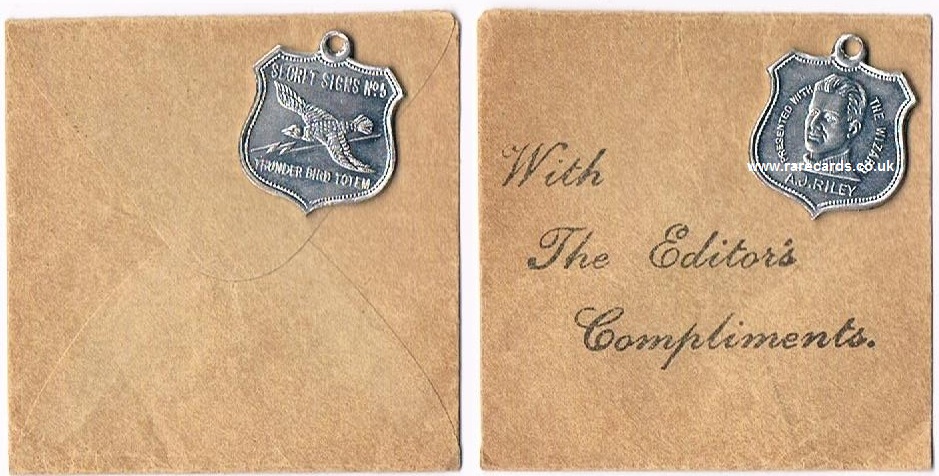 SECRET SIGNS No 5
THUNDER BIRD TOTEM
PRESENTED WITH THE WIZARD
A.J. RILEY
www.rarecards.co.uk
With
The Editor's
Compliments.